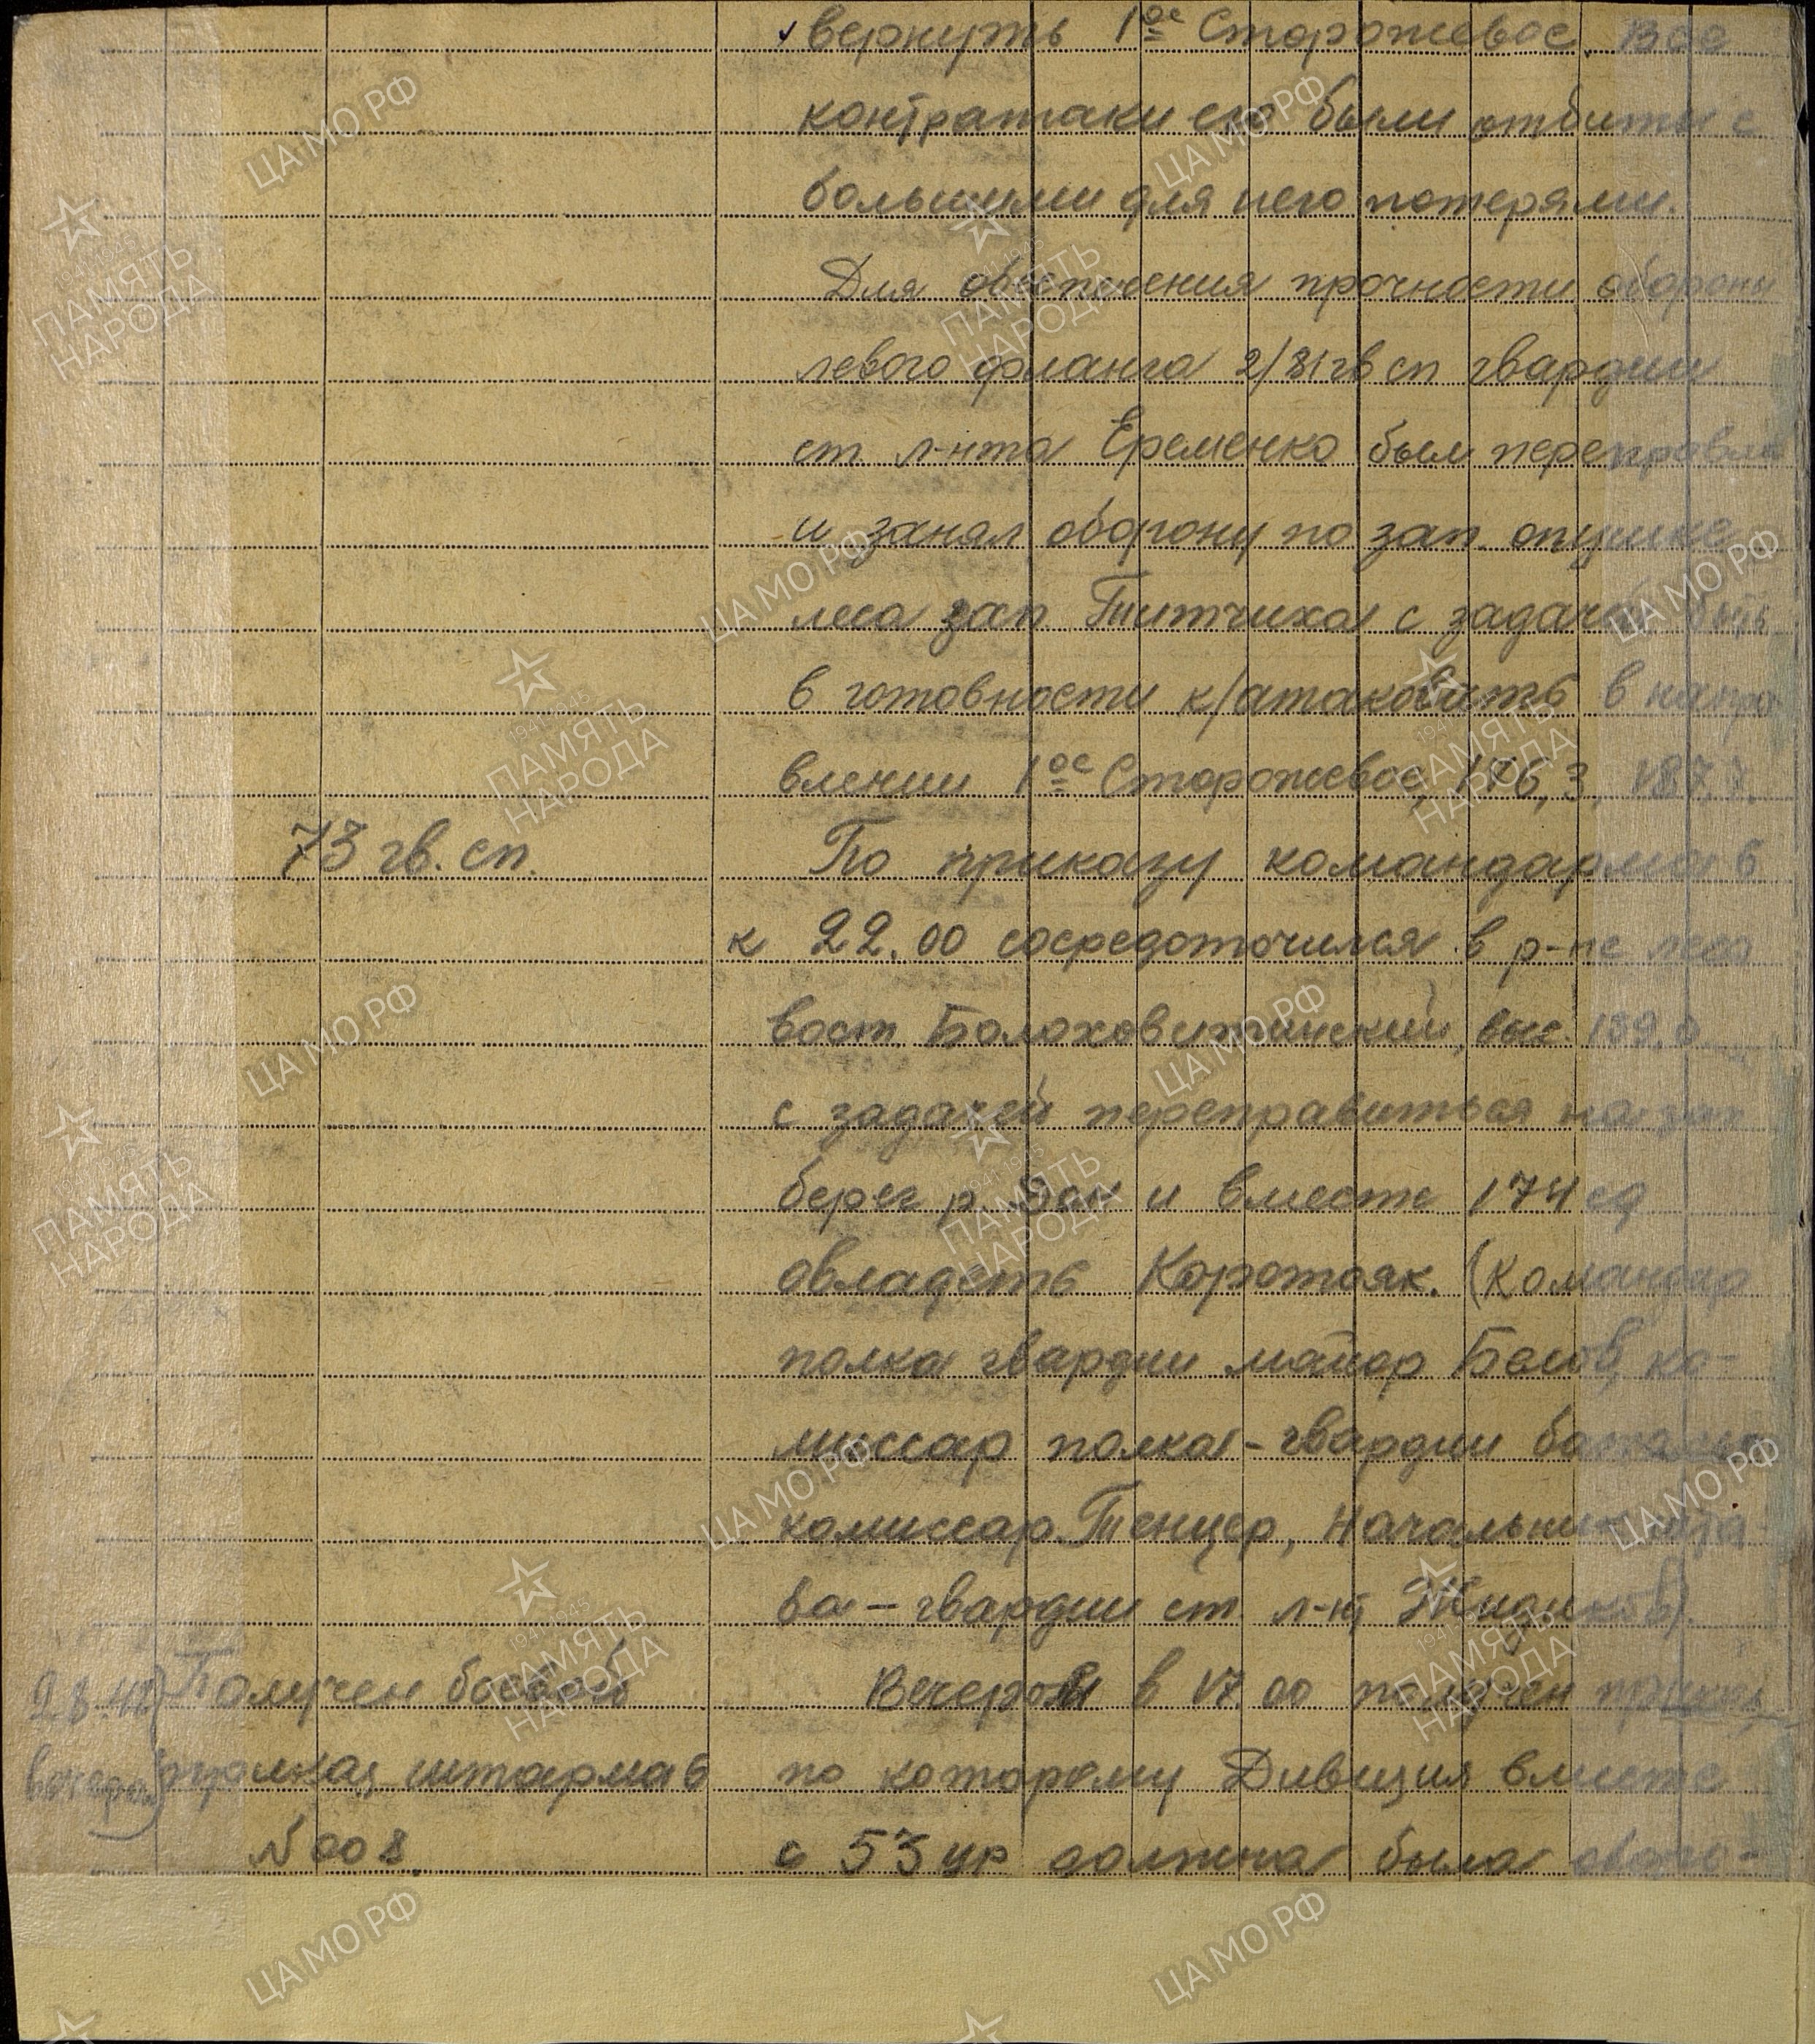 вернуть 1ое Сторожевое. Все
контратаки его были отбиты с
большими для него потерями.
Для обеспечения прочности обороны
левого фланга 2/81 гв сп гвардии
ст. л-нта Еременко был переправлен
и занял оборону по зап. опушке
леса зап Титчиха с задачей быть
в готовности к/атаковать в напра
влении 1ое Сторожевое, 176,3, 187,7.
73 гв. сп. По приказу командарма 6
к 22.00 сосредоточился в р-не леса
вост. Болоховитинский, выс.
с задачей переправиться на зап
берег р. Дон и вместе 174 сд
овладеть Коротояк. (Командир
полка гвардии майор Белов, ко-
миссар полка - гвардии
комиссар Тенцер, Начальник шта-
ба - гвардии ст. л-нт
Получен боевой Вечером в 17.00 получен приказ,
вечером приказ штарма 6 по которому Дивизия вместе
№ 008. с 53 ур должна была
ЦАМО РФ
ПАМЯТЬ НАРОДА
1941-1945